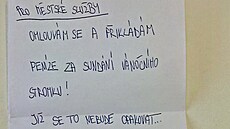 PRO MĚSTSKÉ SLUŽBY
OMLOUVÁM SE A PŘIKLÁDÁM
PENÍZE ZA SUNDÁNÍ VÁNOČNÍHO
STROMKU!
JIŽ SE TO NEBUDE OPAKOVAT...